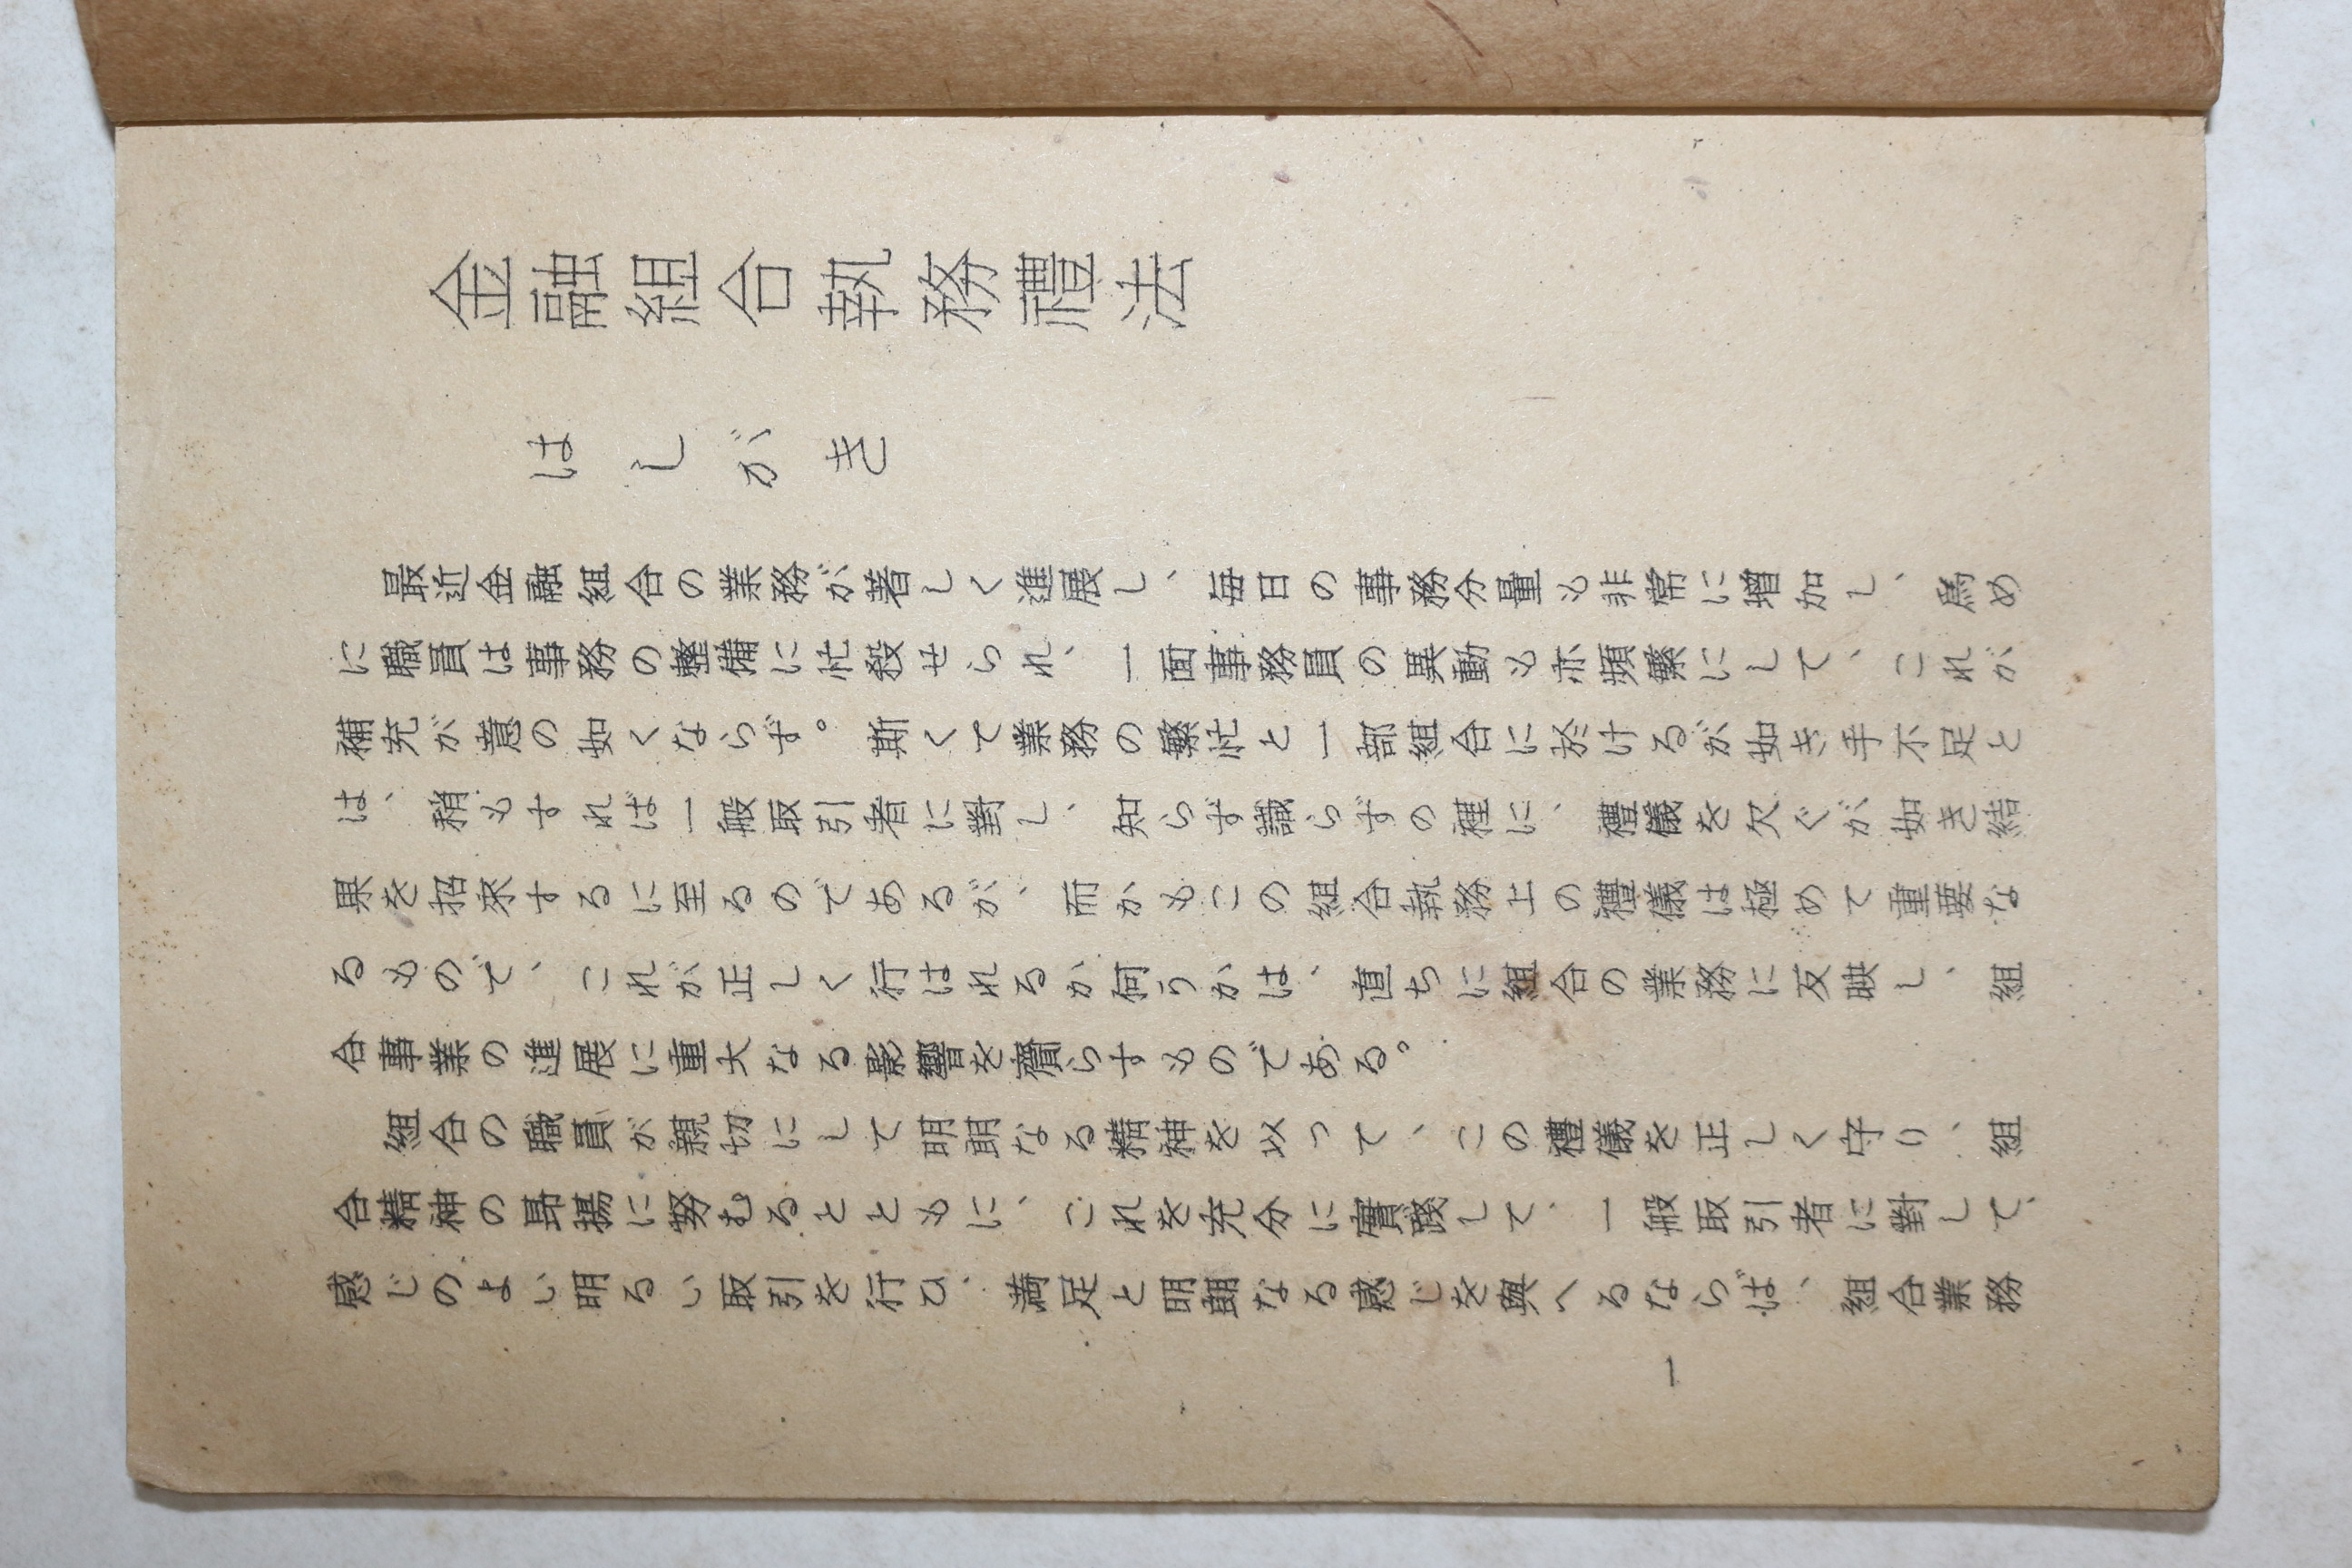 金融組合執務禮法
はしがき
最近金融組合の業務が著しく進展し、毎日の事務分量も非常に増加し、爲め
に職員は事務の整備に忙殺せられ、一面事務員の異動も亦頻繁にして、これが
補充が意の如くならず。斯くて業務の繁忙と一部組合に於けるが如き手不足と
は、稍もすれば一般取引者に對し、知らず識らずの裡に、禮儀を欠ぐが如き結
果を招來するに至るのであるが、而かもこの組合執務上の禮儀は極めて重要な
るもので、これが正しく行はれるか何うかは、直ちに組合の業務に反映し、組
合事業の進展に重大なる影響を齎らすものである。
組合の職員が親切にして明朗なる精神を以つて、この禮儀を正しく守り、組
合精神の昻揚に努むるとともに、これを充分に實踐して、一般取引者に對して、
感じのよい明るい取引を行ひ、満足と明朗なる感じを與へるならば、組合業務
一